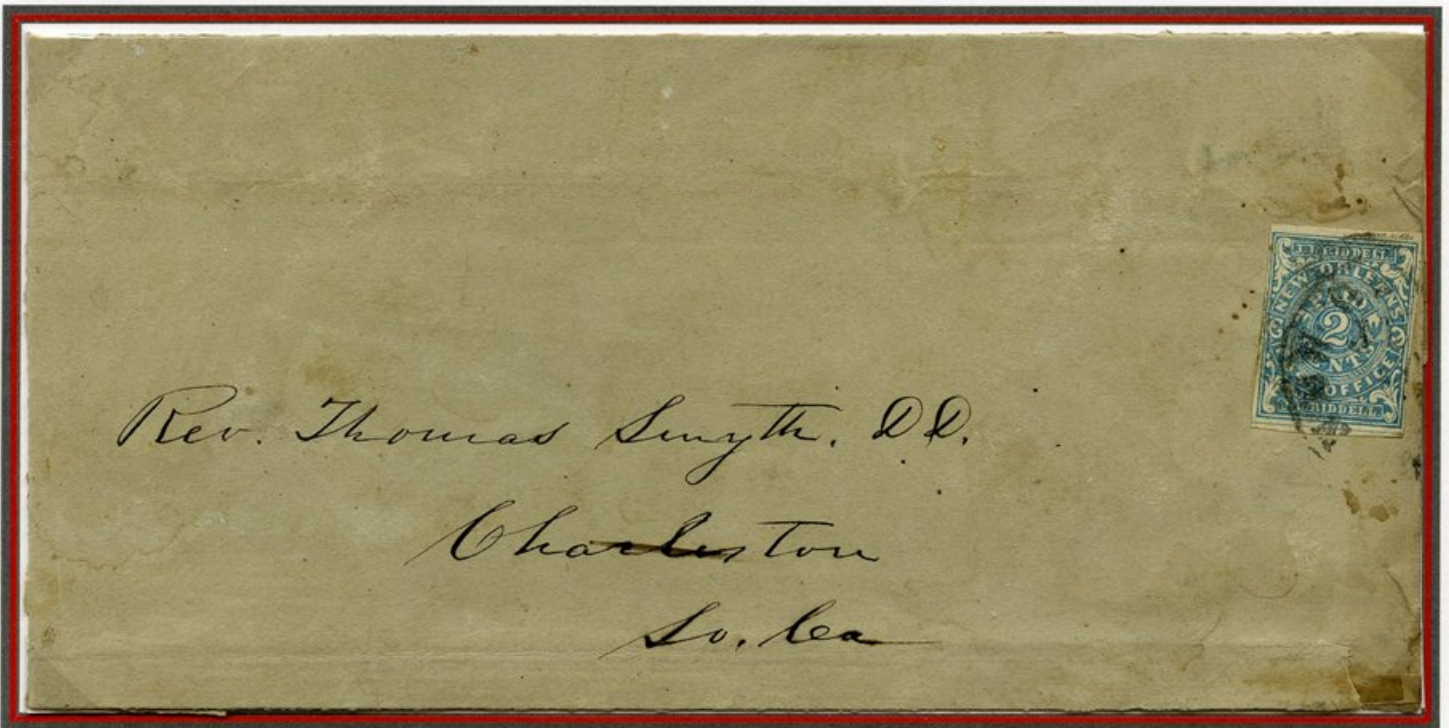 J.L. RIDDELL
NEW ORLEANS
2
CENTS
POST OFFICE
J.L. RIDDELL
Rev. Thomas Smyth. D.D.
Charleston
So. Ca